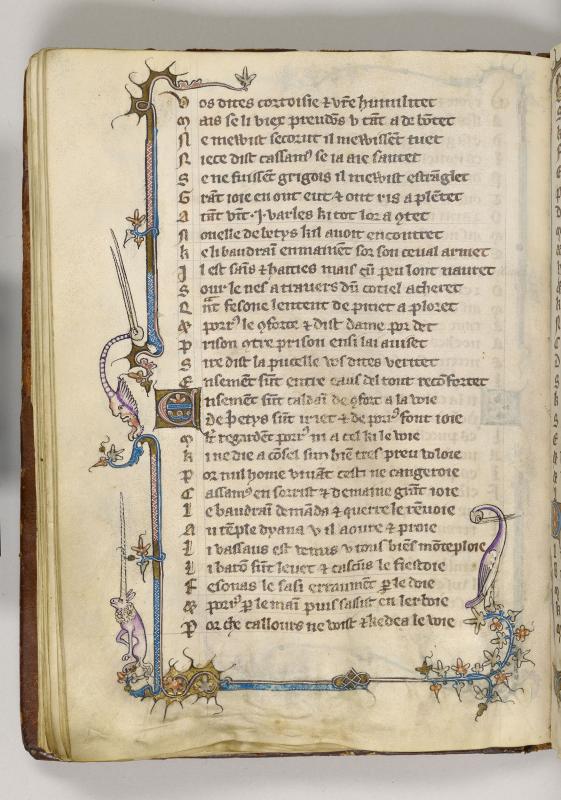 V os dites cortoisie & vr̄e humilitet
M ais se li viex preudōs v tāt a de bōtet
N e mewist secorut il mewissēt tuet
N iece dist cassanꝰ se ia aie santet
S e ne fuissēt grigois il mewist estrāglet
G rāt ioie en ont eut & ont ris a plētet
A tāt vīt .j. varles ki tot lor a ꝯtet
N ouelle de betys kil auoit encontret
K e li baudraī enmainēt sor son ceual armet
J l est sans & haities mais .j. peu lont naureit
S our le nes a trauers dū cotiel acheret
Q n̄t fesone lentent de pitiet a ploret
& porrꝰ le ꝯforte & dist dame por det
P rison ꝯtre prison ensi lai auiset
S ire dist la pucelle vos dites veritet
E nsement sūt entre eaus del tout recōfortet
E nsement sūt caldaī de ꝯfort a la voie
de betys sūt iriet & de porrꝰ font ioie
M lt̄ regardēt porrꝰ ni a cel ki le voie
K i ne die a cōsel sun biē tres preu voloie
P or nul home viuāt cesti ne cangeroie
C assamꝰ en sorrist & demaine grāt ioie
L e baudraī demāda & querre le rēuoie
A u tēple dyana v il aoure & proie
L i vassaus est venus v tous biēs mōteploie
L i barō sūt leuet & cascūs le fiestoie
F esonas le saisi erraumēt p̲ le doie
& porrꝰ p̲ le maī puis sassist en lerboie
P or che callours ne voist & kedea le voie